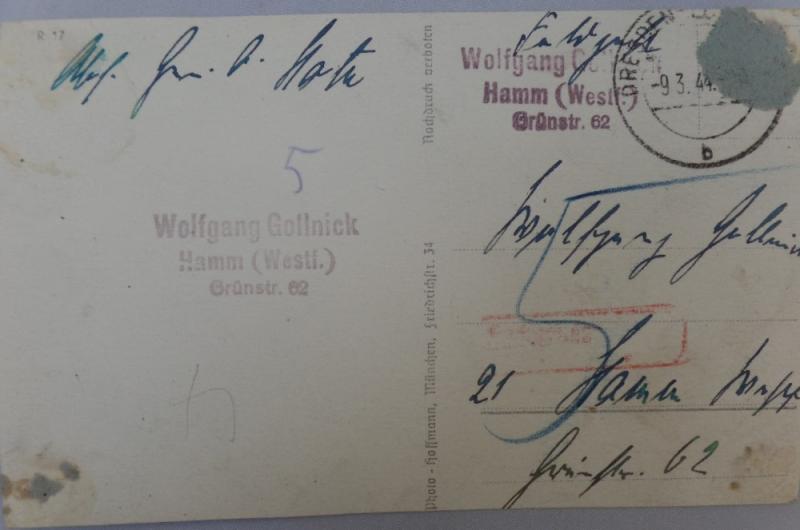 R 17
Abs. Gen. d.
5
Wolfgang Gollnick
Hamm (Westf.)
Grünstr. 62
Nachdruck verboten
Photo - Hoffmann, München, Friedrichstr. 34
Feldpost
Wolfgang Gollnick
Hamm (Westf.)
Grünstr. 62
DRESDEN
-9.3.44.
b
Wolfgang Gollnick
21 Hamm Westf
Grünstr. 62